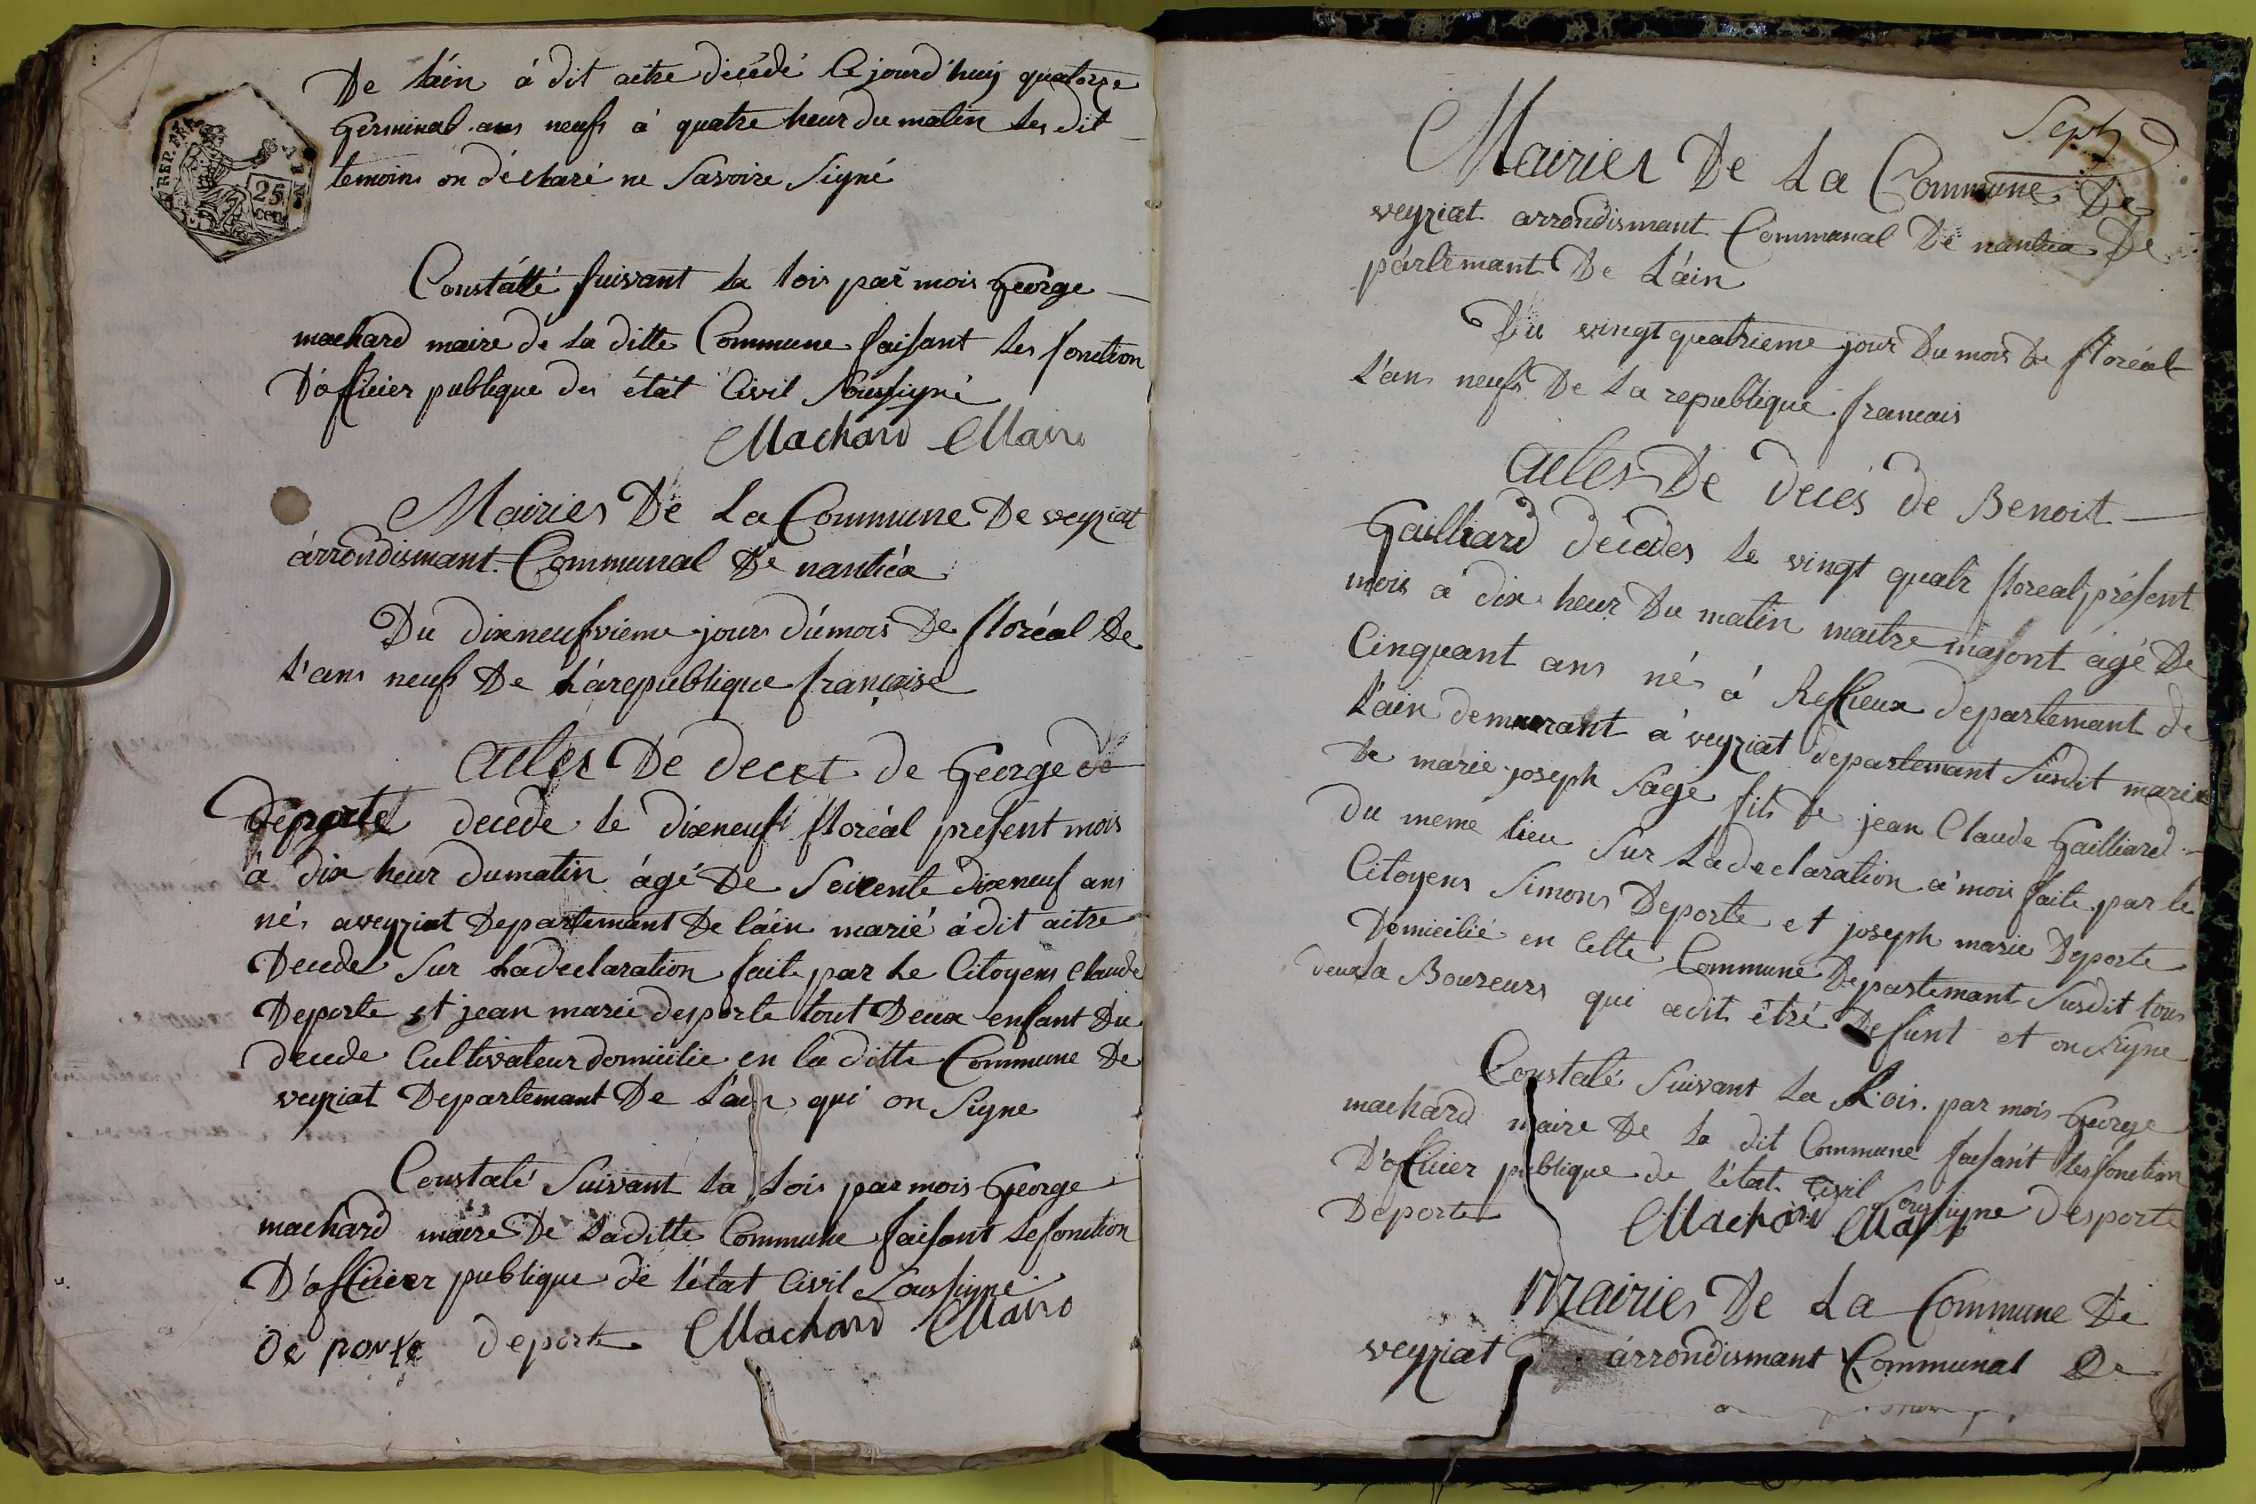 De láin á dit aitre décédé Ce jourd'huy quatorze
Germinal ans neufs á quatre heur du matin les dit
temoins on déclaré ne Savoire Signé
REP. FRA
25
cen.
Constátté suivant la lois par mois George
machard maire dé la ditte Commune faisant les fonction
D'officier publique des état Civil Soussigné
Machard Maire
Mairies De La Commune De veyziat
árrondismant Communal De nantúa
Du dixneufvieme jours dúmois De floréal De
l'ans neufs De Lárepublique française
Actes De Decet de George de
deporte decede le dixneuf floréal present mois
á dix heur dumatin ágé De Soixente dixneuf ans
nés aveyziat Departemant De láin marié á dit aitre
Decede Sur Ladeclaration faite par Le Citoyens Claude
Deporte et jean marie desporte tout Deux enfant Du
decede Cultivateur domicilie en la ditte Commune De
veyziat Departemant De L'ain qui on Signe
Constaté Suivant la Lois par mois George
machard maire De Laditte Commune faisant Lefonction
D'officier publique de l'état Civil Soussigné
de porte deporte Machard Maire
Sept
Mairies De La Commune De
veyziat arrondismant Communal De nantua De
pártemant De Láin
Du vingt quatrieme jour Du mois De floréal
L'ans neufs De La republique francais
Actes De Decés de Benoit
Gailliard decedes le vingt quatr floreal présent
mois á dix heur Du matin maitre masont ágé De
Cinquant ans nés á Reffieux departemant de
L'ain demeurant á veyziat departemant Susdit marie
De marie joseph Sage fils De jean Claude Gailliard
du meme lieu Sur Ladeclaration á mois faite par le
Citoyens Simons Deporte et joseph marie Deporte
Domicilié en Cette Commune Departemant Susdit tous
deux La Boureurs qui adit étré Defunt et on Signe
Constaté Suivant La Lois par mois George
machard maire De la dit Commune faisant Les fonction
D'officier publique de l'état Civil Soussigne desporte
Deporte Machard Maire
Mairies De La Commune De
veyziat árrondismant Communal De